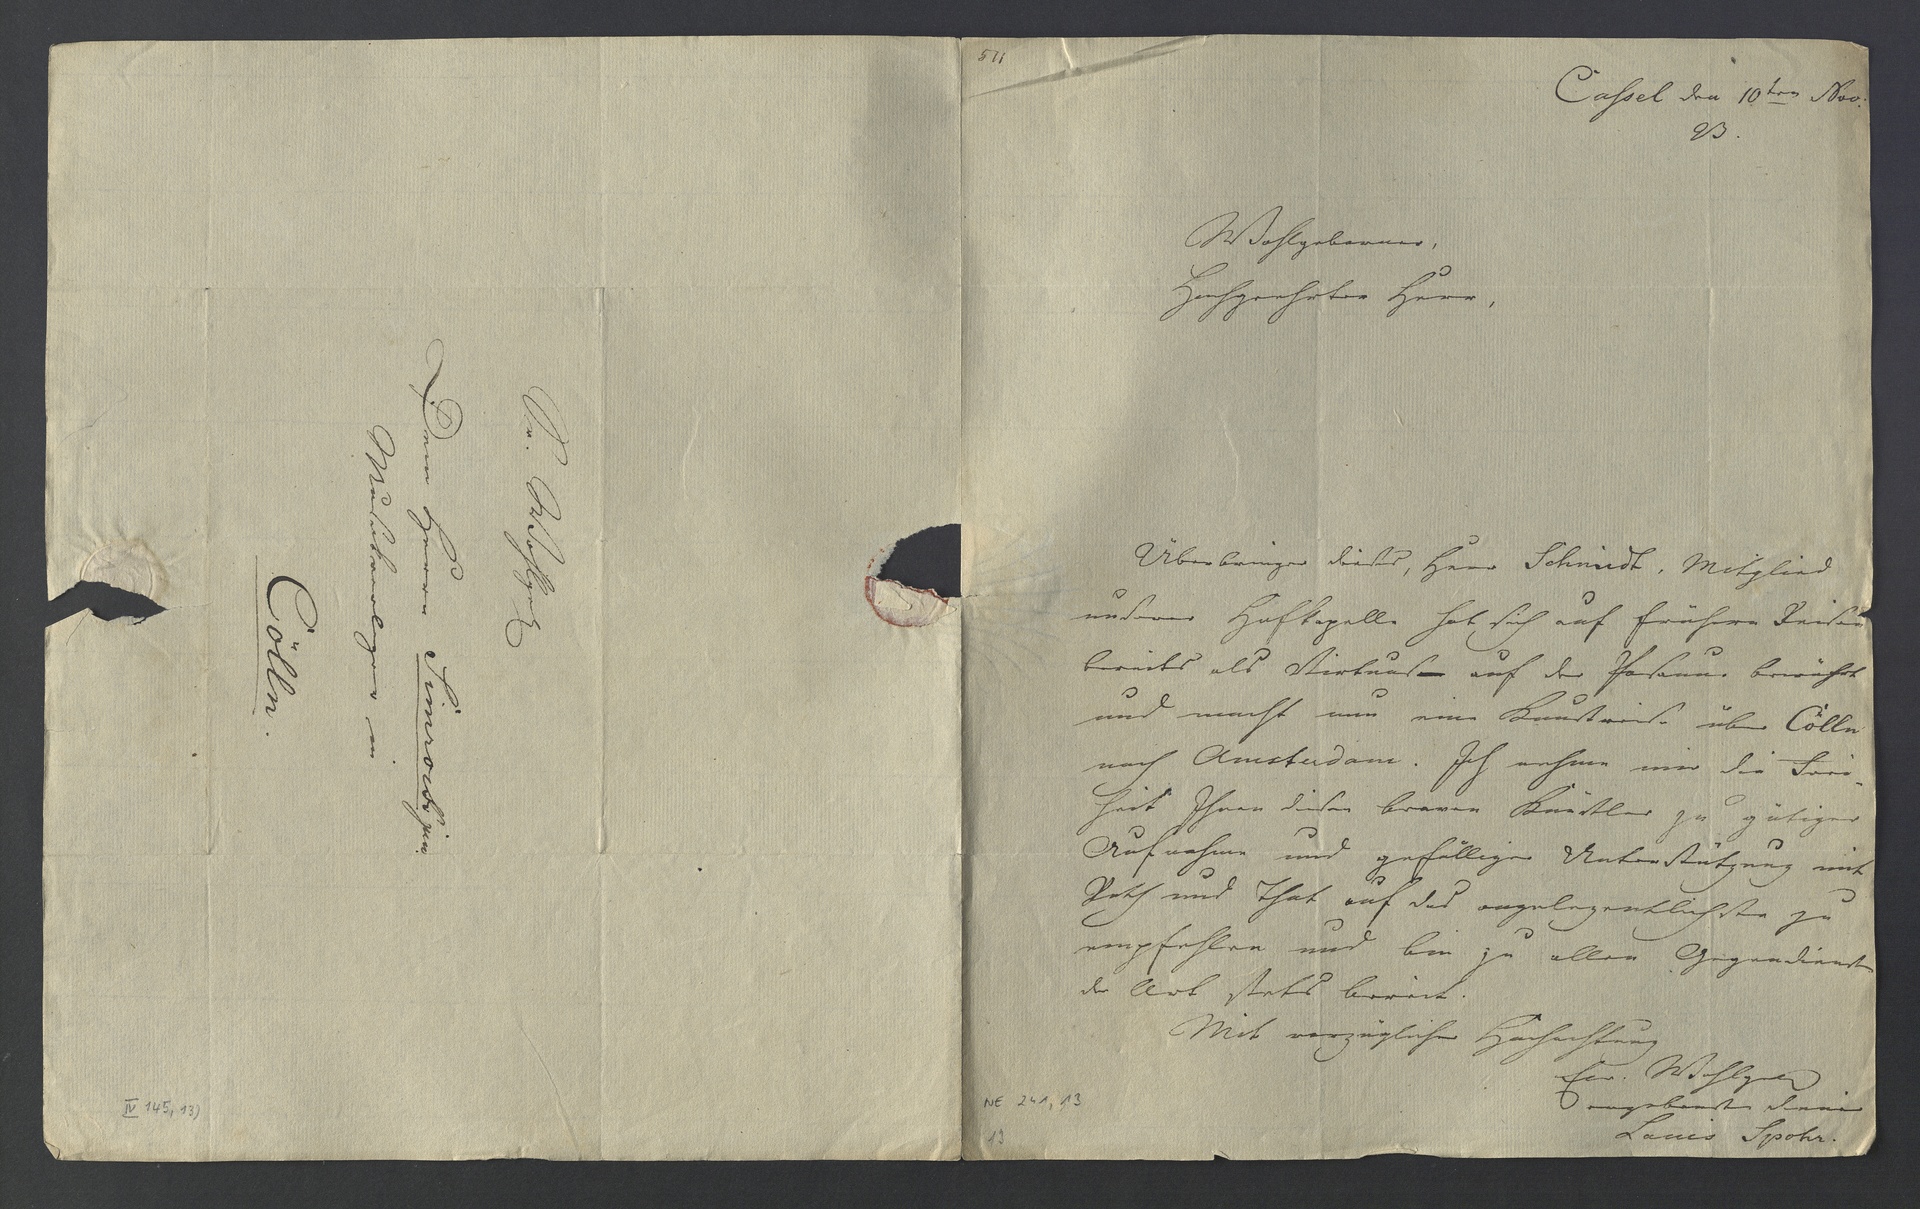 Sr. Wohlgeb
Dem Herrn Simrock jun.
Musikverleger in
Cölln.
IV 145, 13)
511
Cassel den 10ten Nov.
23.
Wohlgeborner,
Hochgeehrter Herr,
Überbringer dieses, Herr Schmidt, Mitglied
unserer Hofkapelle hat sich auf frühern Reisen
bereits als Virtuose auf der Posaune bewährt
und macht nun eine Kunstreise über Cölln
nach Amsterdam. Ich nehme mir die Frei-
heit Ihnen diesen braven Künstler zu gütiger
Aufnahme und gefälliger Unterstützung mit
Rath und That auf das angelegentlichste zu
empfehlen und bin zu allen Gegendiensten
der Art stets bereit.
Mit vorzüglicher Hochachtung
Ew. Wohlgeb
ergebenster Diener
Louis Spohr.
NE 241, 13
13